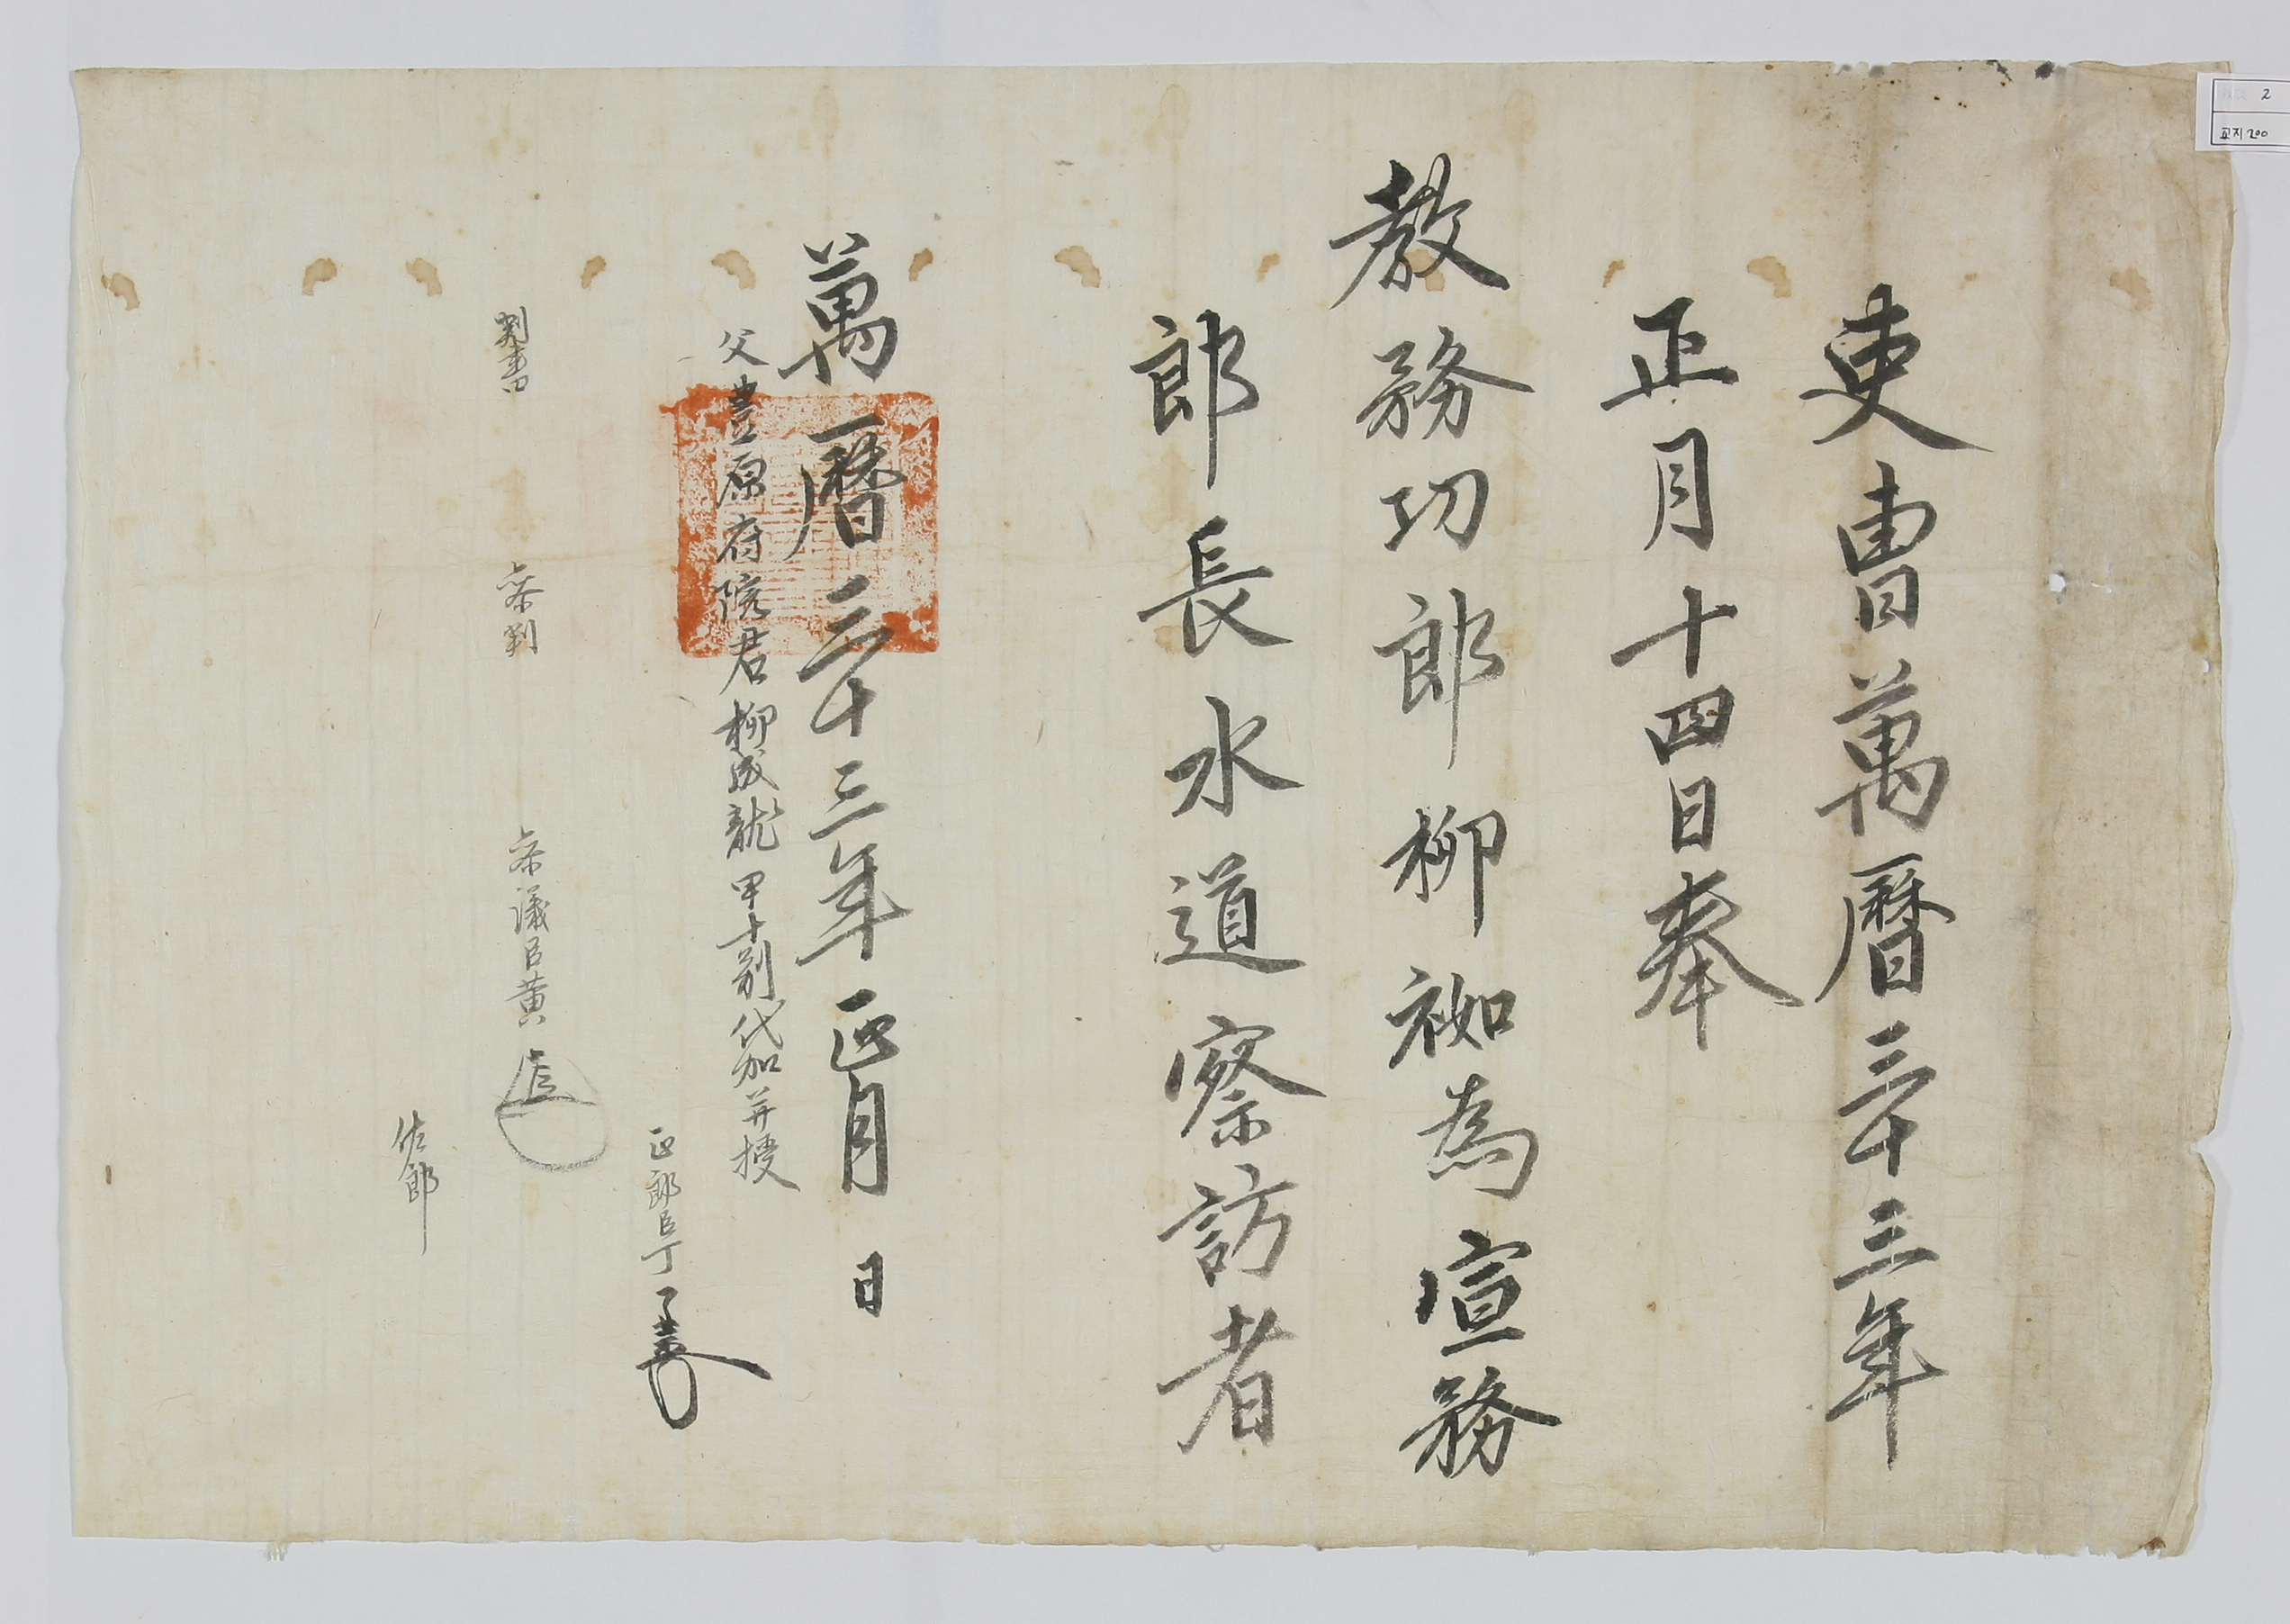 吏曹萬曆三十三年
正月十四日奉
敎務功郎柳袽爲宣務
郎長水道察訪者
萬曆三十三年正月 日
父豊原府院君柳成龍甲午別代加幷授
正郎臣丁
判書 參判 參議臣黃
佐郎
2
교지 200